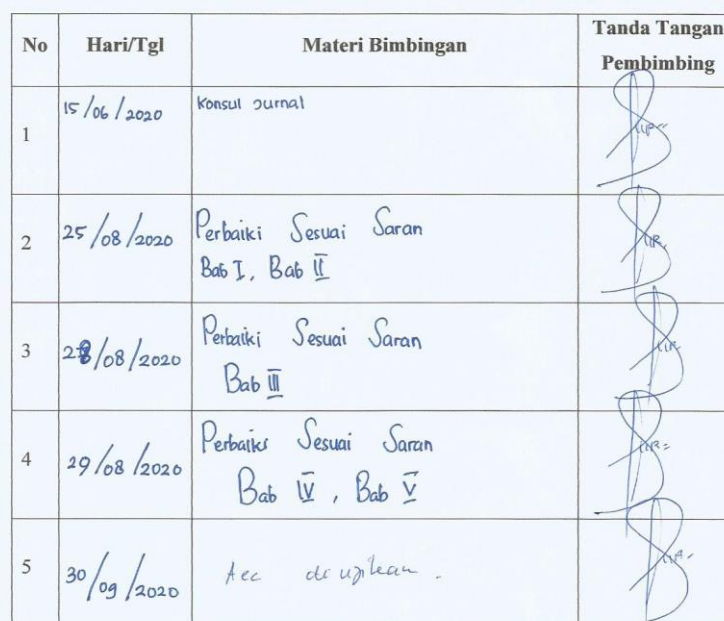 No Hari/Tgl Materi Bimbingan Tanda Tangan
Pembimbing
1 15/06/2020 Konsul Jurnal
2 25/08/2020 Perbaiki Sesuai Saran
Bab I, Bab II
3 28/08/2020 Perbaiki Sesuai Saran
Bab III
4 29/08/2020 Perbaiki Sesuai Saran
Bab IV, Bab V
5 30/09/2020 Acc diujikan.